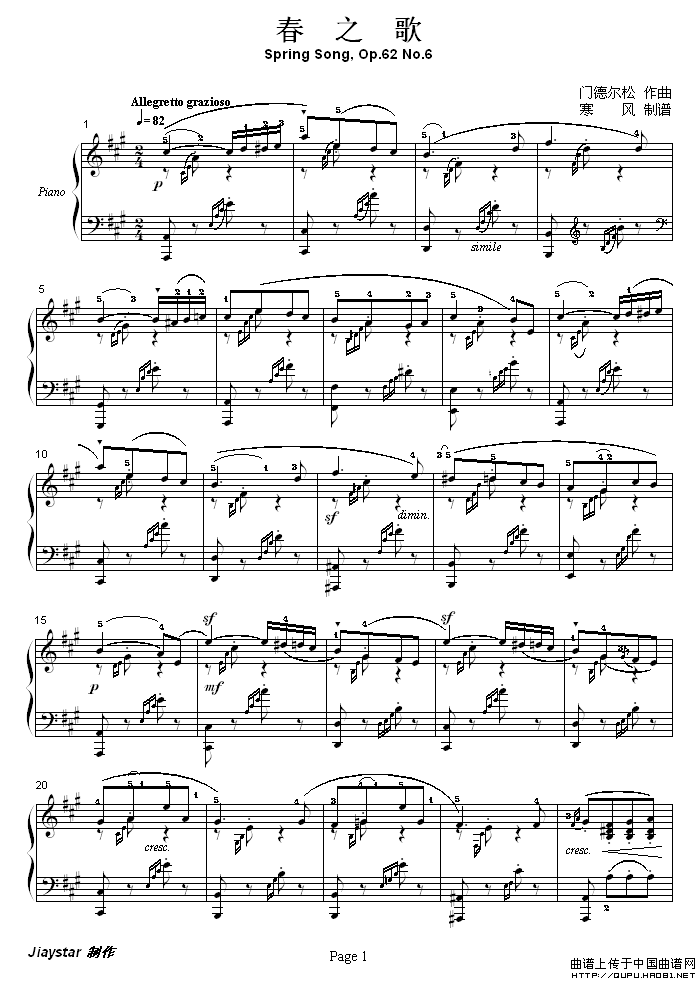 春 之 歌
Spring Song, Op.62 No.6
Allegretto grazioso
♩= 82
门德尔松 作曲
寒 风 制谱
1
Piano
p
simile
5
10
sf
dimin.
15
p
sf
mf
sf
20
cresc.
cresc.
Jiaystar 制作
Page 1
曲谱上传于中国曲谱网
HTTP://QUPU.HAO81.NET